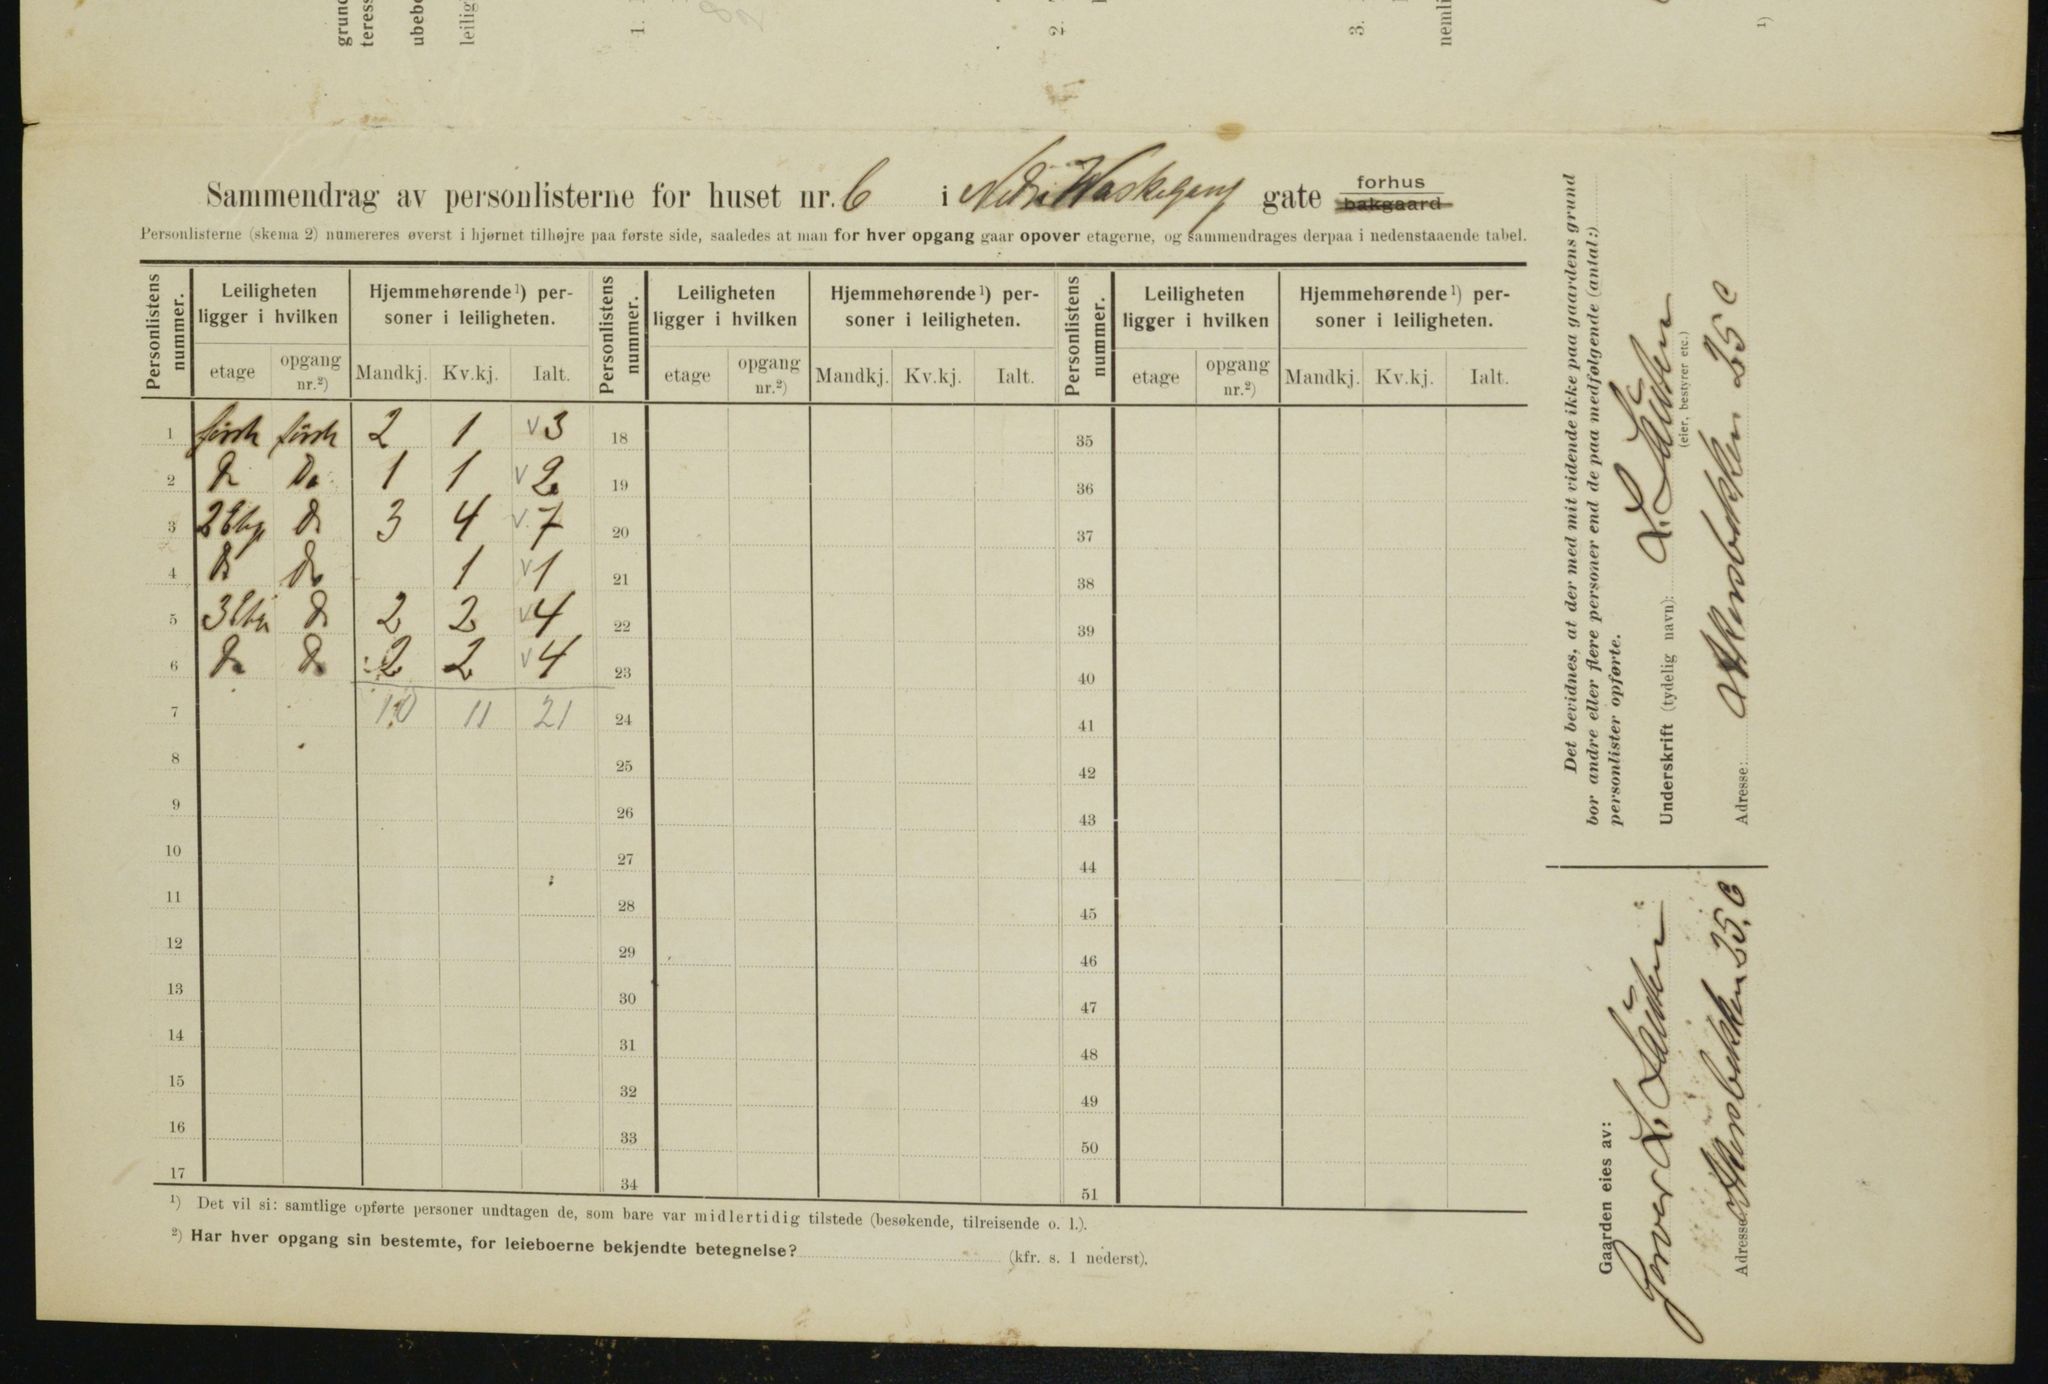 grun
teres
ubebo
leilig
1.
2.
3.
nemli
1)
Sammendrag av personlisterne for huset nr. 6 i Nedre Waskegang gate forhus bakgaard
Personlisterne (skema 2) numereres øverst i hjørnet tilhøjre paa første side, saaledes at man for hver opgang gaar opover etagerne, og sammendrages derpaa i nedenstaaende tabel.
Personlistens nummer. Leiligheten ligger i hvilken Hjemmehørende 1) personer i leiligheten. Personlistens nummer. Leiligheten ligger i hvilken Hjemmehørende 1) personer i leiligheten. Personlistens nummer. Leiligheten ligger i hvilken Hjemmehørende 1) personer i leiligheten.
etage opgang nr.2) Mandkj. Kv.kj. Ialt. etage opgang nr.2) Mandkj. Kv.kj. Ialt. etage opgang nr.2) Mandkj. Kv.kj. Ialt.
1 første første 2 1 v 3 18 35
2 Do Do 1 1 v 2 19 36
3 2 Etg. Do 3 4 v 7 20 37
4 Do Do 1 v 1 21 38
5 3 Etg. Do 2 2 v 4 22 39
6 Do Do 2 2 v 4 23 40
7 10 11 21 24 41
8 25 42
9 26 43
10 27 44
11 28 45
12 29 46
13 30 47
14 31 48
15 32 49
16 33 50
17 34 51
1) Det vil si: samtlige opførte personer undtagen de, som bare var midlertidig tilstede (besøkende, tilreisende o. l.).
2) Har hver opgang sin bestemte, for leieboerne bekjendte betegnelse? (kfr. s. 1 nederst).
Det bevidnes, at der med mit vidende ikke paa gaardens grund
bor andre eller flere personer end de paa medfølgende (antal:)
personlister opførte.
Underskrift (tydelig navn):
(eier, bestyrer etc.)
Adresse: Akersbakken 25 C
Gaarden eies av:
Adresse: Akersbakken 25. C